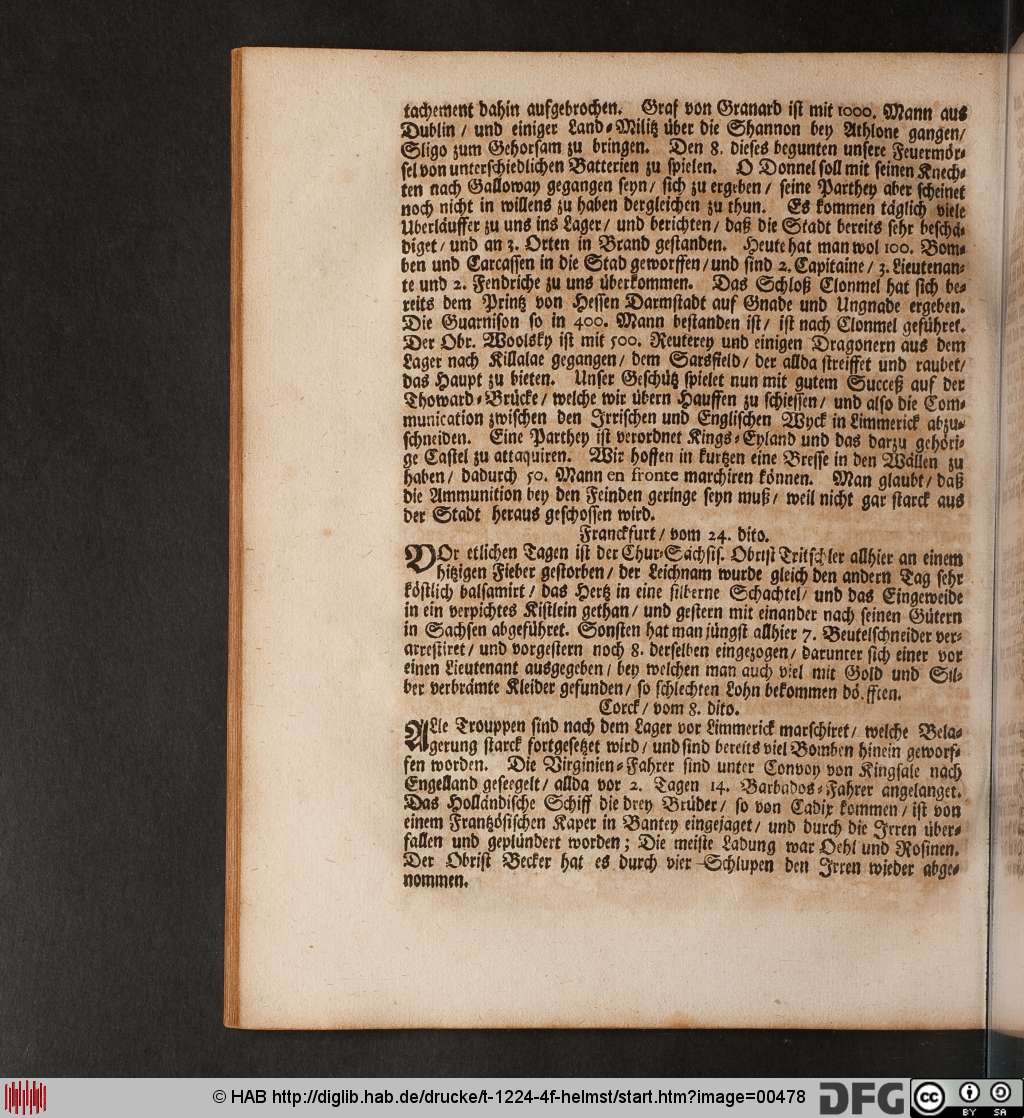 tachement dahin aufgebrochen. Graf von Granard ist mit 1000. Mann aus
Dublin / und einiger Land-Militz über die Shannon bey Athlone gangen/
Sligo zum Gehorsam zu bringen. Den 8. dieses begunten unsere Feuermör-
sel von unterschiedlichen Batterien zu spielen. O Donnel soll mit seinen Knech-
ten nach Galloway gegangen seyn/ sich zu ergeben / seine Parthey aber scheinet
noch nicht in willens zu haben dergleichen zu thun. Es kommen täglich viele
Uberläuffer zu uns ins Lager/ und berichten/ daß die Stadt bereits sehr beschä-
diget/ und an 3. Orten in Brand gestanden. Heute hat man wol 100. Bom-
ben und Carcassen in die Stad geworffen/ und sind 2. Capitaine/ 3. Lieutenan-
te und 2. Fendriche zu uns überkommen. Das Schloß Clonmel hat sich be-
reits dem Printz von Hessen Darmstadt auf Gnade und Ungnade ergeben.
Die Guarnison so in 400. Mann bestanden ist/ ist nach Clonmel geführet.
Der Obr. Woolsky ist mit 500. Reuterey und einigen Dragonern aus dem
Lager nach Killalae gegangen/ dem Sarsfield/ der allda streiffet und raubet/
das Haupt zu bieten. Unser Geschütz spielet nun mit gutem Succeß auf der
Thoward-Brücke/ welche wir übern Hauffen zu schiessen/ und also die Com-
munication zwischen den Irrischen und Englischen Wyck in Limmerick abzu-
schneiden. Eine Parthey ist verordnet Kings-Eyland und das darzu gehöri-
ge Castel zu attaquiren. Wir hoffen in kurtzen eine Bresse in den Wällen zu
haben/ dadurch 50. Mann en fronte marchiren können. Man glaubt/ daß
die Ammunition bey den Feinden geringe seyn muß/ weil nicht gar starck aus
der Stadt heraus geschossen wird.
Franckfurt/ vom 24. dito.
VOr etlichen Tagen ist der Chur-Sächsis. Obrist Tritschler allhier an einem
hitzigen Fieber gestorben/ der Leichnam wurde gleich den andern Tag sehr
köstlich balsamirt/ das Hertz in eine silberne Schachtel/ und das Eingeweide
in ein verpichtes Kistlein gethan/ und gestern mit einander nach seinen Gütern
in Sachsen abgeführet. Sonsten hat man jüngst allhier 7. Beutelschneider ver-
arrestiret/ und vorgestern noch 8. derselben eingezogen/ darunter sich einer vor
einen Lieutenant ausgegeben/ bey welchen man auch viel mit Gold und Sil-
ber verbrämte Kleider gefunden/ so schlechten Lohn bekommen dö.fften.
Corck/ vom 8. dito.
ALle Trouppen sind nach dem Lager vor Limmerick marschiret/ welche Bela-
gerung starck fortgesetzet wird/ und sind bereits viel Bomben hinein geworf-
fen worden. Die Virginien-Fahrer sind unter Convoy von Kingsale nach
Engelland geseegelt/ allda vor 2. Tagen 14. Barbados-Fahrer angelanget.
Das Holländische Schiff die drey Brüder/ so von Cadix kommen/ ist von
einem Frantzösischen Kaper in Bantey eingejaget/ und durch die Irren über-
fallen und geplündert worden; Die meiste Ladung war Oehl und Rosinen.
Der Obrist Becker hat es durch vier Schlupen den Irren wieder abge-
nommen.
© HAB http://diglib.hab.de/drucke/t-1224-4f-helmst/start.htm?image=00478
DFG
cc
BY SA